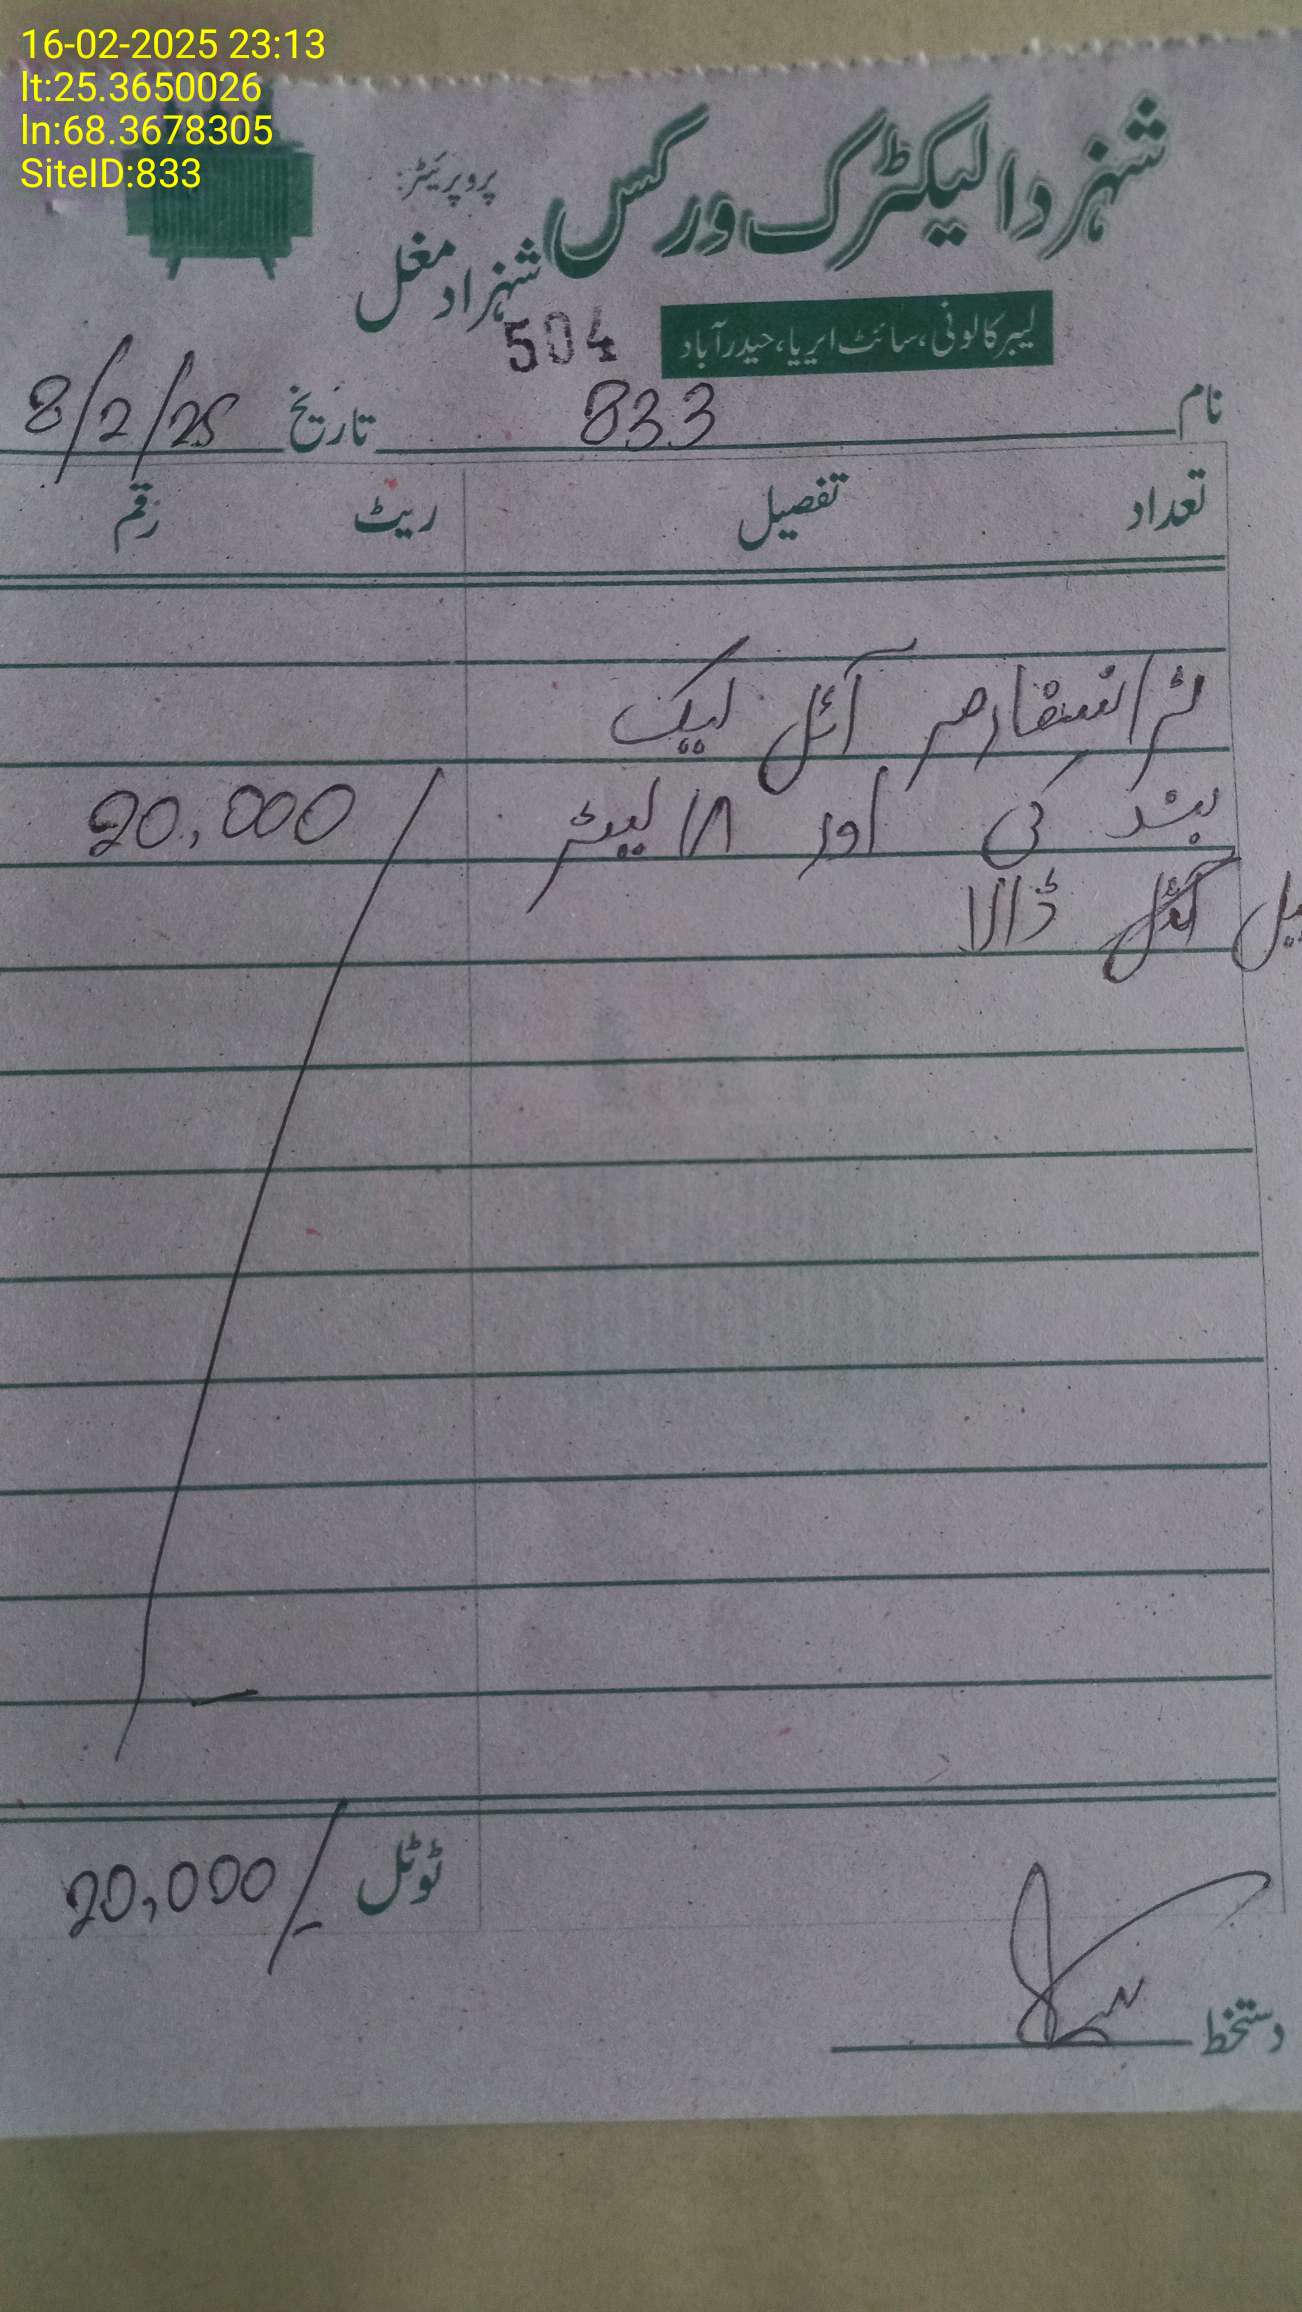 16-02-2025 23:13
lt:25.3650026
ln:68.3678305
SiteID:833
شہزاد الیکٹرک ورکس
پروپریٹر:
شہزاد مغل
504
لیبر کالونی، سائٹ ایریا، حیدرآباد
نام 833 تاریخ 8/2/25
تعداد تفصیل ریٹ رقم
ٹرانسفارمر آئل لیک
بند کی اور ۱۸ لیٹر 20,000/
آئل ڈالا
ٹوٹل 20,000/-
دستخط